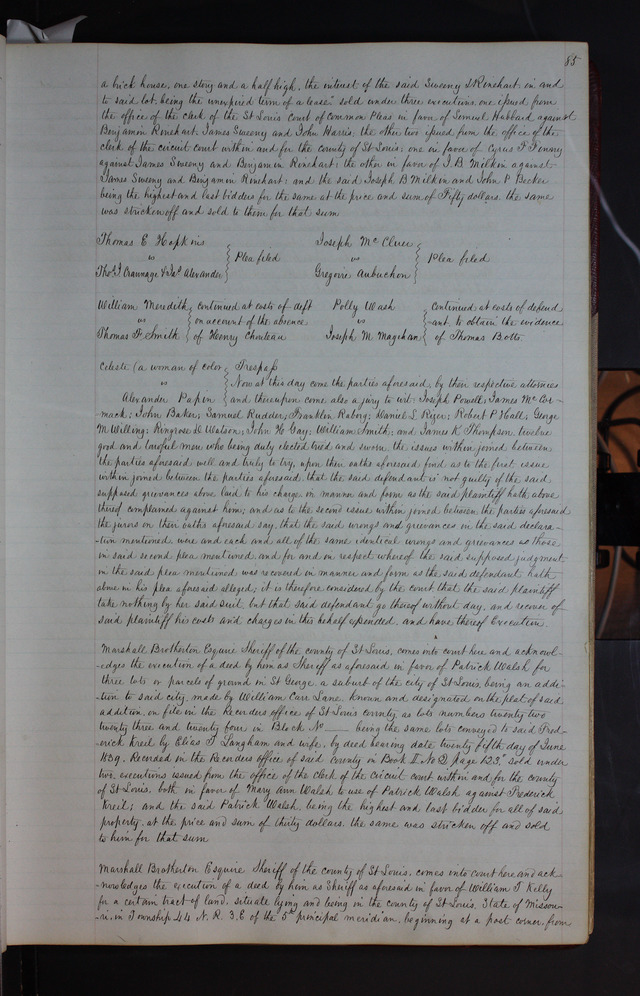 85
a brick house, one story and a half high, the interest of the said Sweeny & Rinehart, in and
to said lot, being the unexpired term of a lease" sold under three executions one issued from
the office of the clerk of the St Louis Court of Common Pleas in favor of Lemuel Hubbard against
Benjamin Rinehart James Sweeny and John Harris, the other two issued from the office of the
clerk of the circuit court within and for the county of St Louis; one in favor of Cyrus F
against James Sweeny and Benjamin Rinehart; the other in favor of J. B. Milkin against
James Sweeny and Benjamin Rinehart; and the said Joseph B Milkin and John P Becker
being the highest and last bidders for the same at the price and sum of Fifty dollars. the same
was stricken off and sold to them for that sum
Thomas E Hopkins
vs
Thos J. & Jas Alexander
Plea filed
Joseph McClure
vs
Gregorie Aubuchon
Plea filed
William Meredith
vs
Thomas F. Smith
continued at costs of deft
on account of the absence
of Henry Chouteau
Polly Wash
vs
Joseph M Magehan
continued at costs of defend
-ant, to obtain the evidence
of Thomas Botts
Celeste (a woman of color
vs
Alexander Papin
Trespass
Now at this day come the parties aforesaid, by their respective attornies
and thereupon come also a jury to wit: Joseph Powell; James McCor-
-mack; John Baker; Samuel Rudder; Franklin Raborg; Daniel L Rizer; Robert P Hall; George
M Willing; Ringrose D. Watson; John H Gay; William Smith; and James K Thompson, twelve
good and lawful men who being duly elected tried and sworn the issues within joined between
the parties aforesaid well and truly to try, upon their oaths aforesaid find as to the first issue
within joined between the parties aforesaid, that the said defendant is not guilty of the said
supposed grievances above laid to his charge in manner and form as the said plaintiff hath above
thereof complained against him; and as to the second issue within joined between the parties aforesaid
the jurors on their oaths aforesaid say, that the said wrongs and grievances in the said declara-
-tion mentioned were and each and all of the same identical wrongs and grievances as those
in said second plea mentioned and for and in respect whereof the said supposed judgment
in the said plea mentioned was recovered in manner and form as the said defendant hath
above in his plea aforesaid alleged; it is therefore considered by the court that the said plaintiff
take nothing by her said suit but that said defendant go thereof without day, and recover of
said plaintiff his costs and charges in this behalf expended, and have thereof Execution.
Marshall Brotherton Esquire Sheriff of the county of St Louis, comes into court here and acknowl-
-edges the execution of a deed by him as Sheriff as aforesaid in favor of Patrick Walsh for
three lots or parcels of ground in St George, a suburb of the city of St Louis, being an addi-
-tion to said city made by William Carr Lane, known and designated on the plat of said
addition, on file in the Recorders office of St Louis county, as lots numbers twenty two
twenty three and twenty four in Block No ___ being the same lots conveyed to said Fred-
-erick Kreil by Elias T Langham and wife, by deed bearing date twenty fifth day of June
1839. Recorded in the Recorders office of said County in Book I No 2, page 123," sold under
two executions issued from the office of the clerk of the circuit court within and for the county
of St Louis, both in favor of Mary Ann Walsh to use of Patrick Walsh against Frederick
Kreil; and the said Patrick Walsh, being the highest and last bidder for all of said
property, at the price and sum of thirty dollars, the same was stricken off and sold
to him for that sum
Marshall Brotherton Esquire Sheriff of the county of St Louis, comes into court here and ack
-nowledges the execution of a deed by him as Sheriff as aforesaid in favor of William T Kelly
for a certain tract of land, situate lying and being in the county of St Louis, State of Missou-
-ri, in Township 44 N. R. 3. E of the 5th principal meridian, beginning at a post corner, from